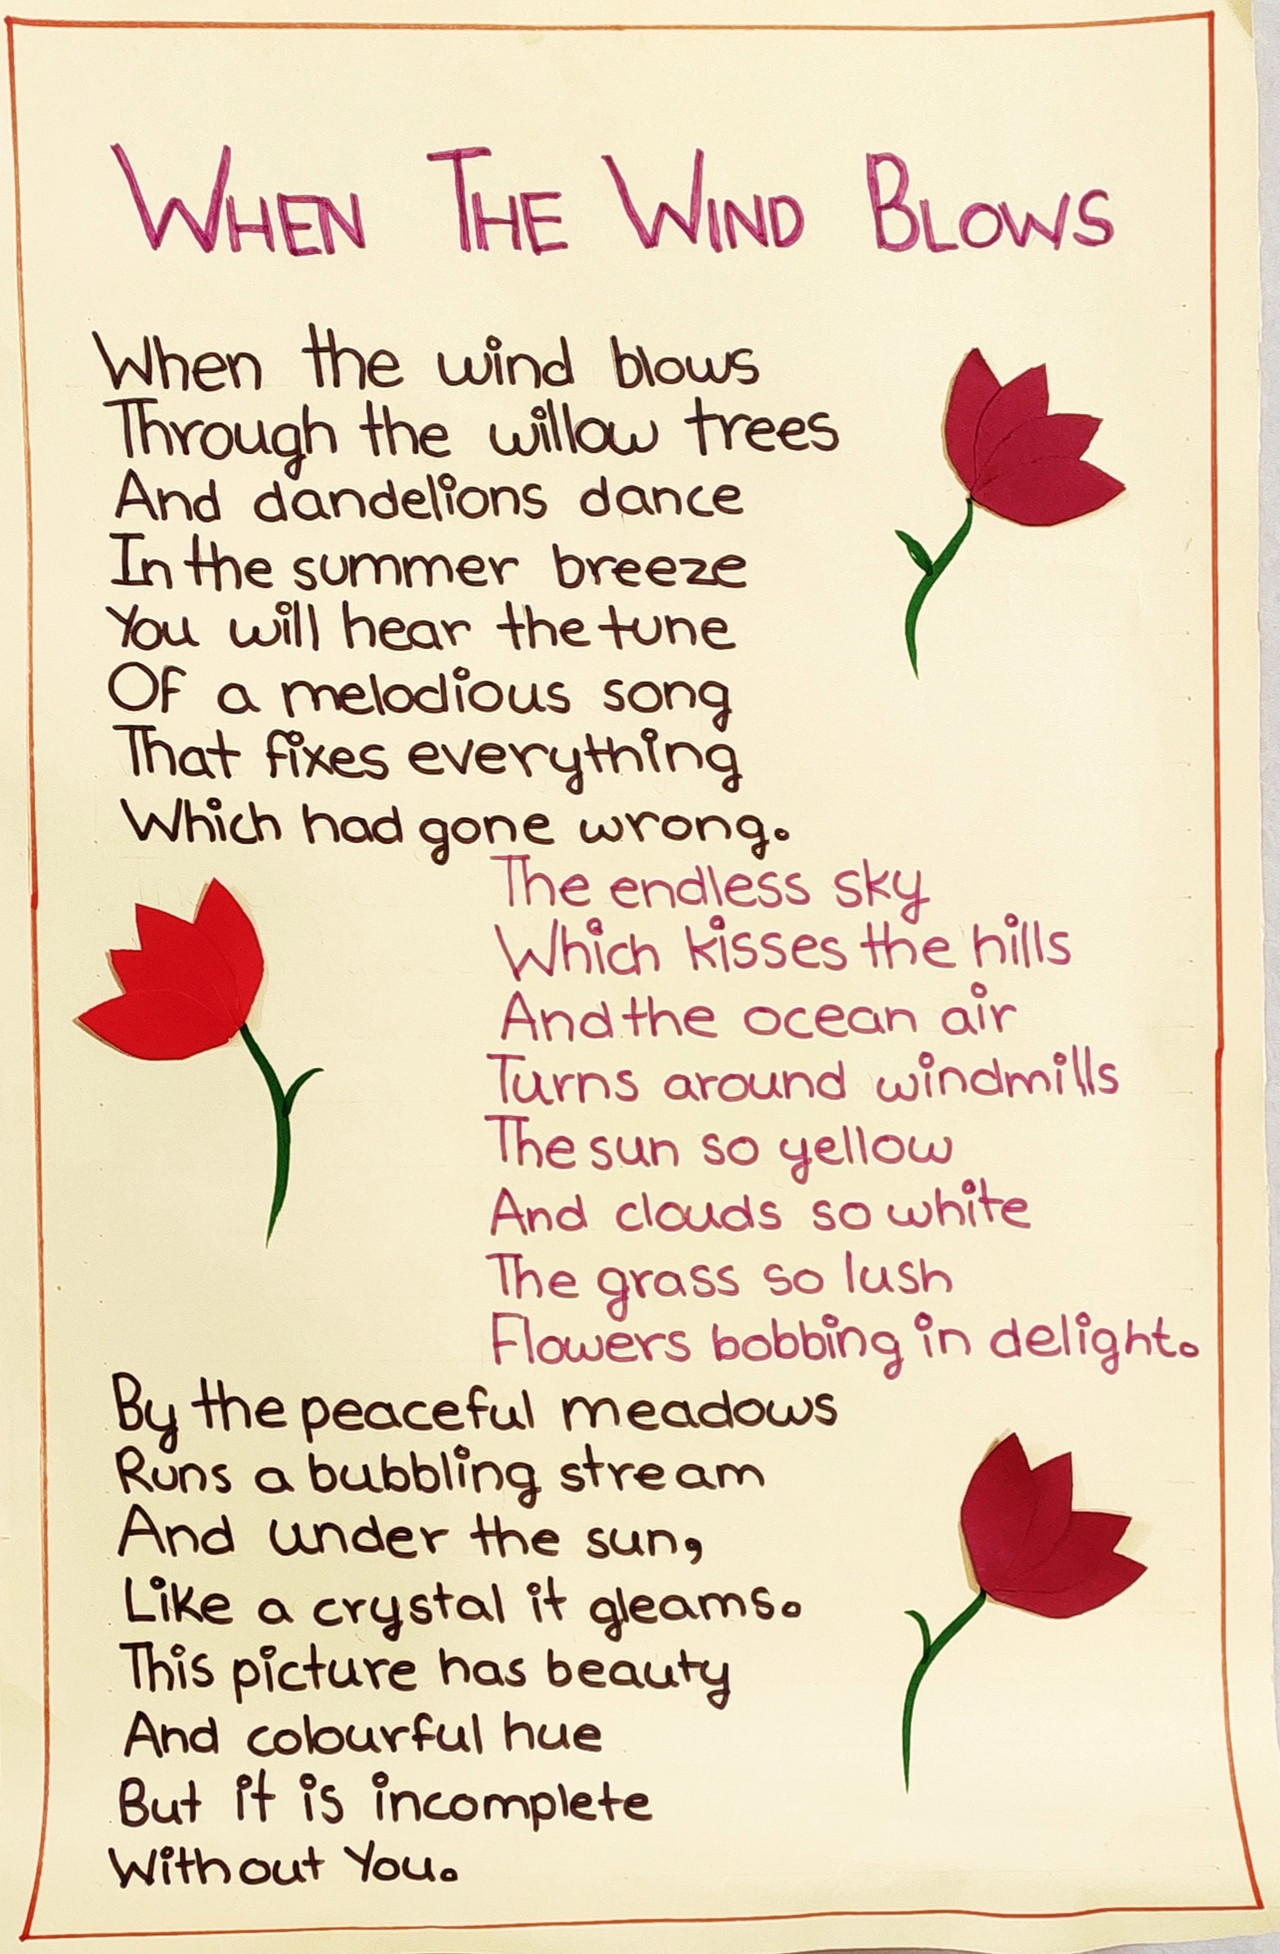 WHEN THE WIND BLOWS
When the wind blows
Through the willow trees
And dandelions dance
In the summer breeze
You will hear the tune
Of a melodious song
That fixes everything
Which had gone wrong.
The endless sky
Which kisses the hills
And the ocean air
Turns around windmills
The sun so yellow
And clouds so white
The grass so lush
Flowers bobbing in delight.
By the peaceful meadows
Runs a bubbling stream
And under the sun,
Like a crystal it gleams.
This picture has beauty
And colourful hue
But it is incomplete
Without You.